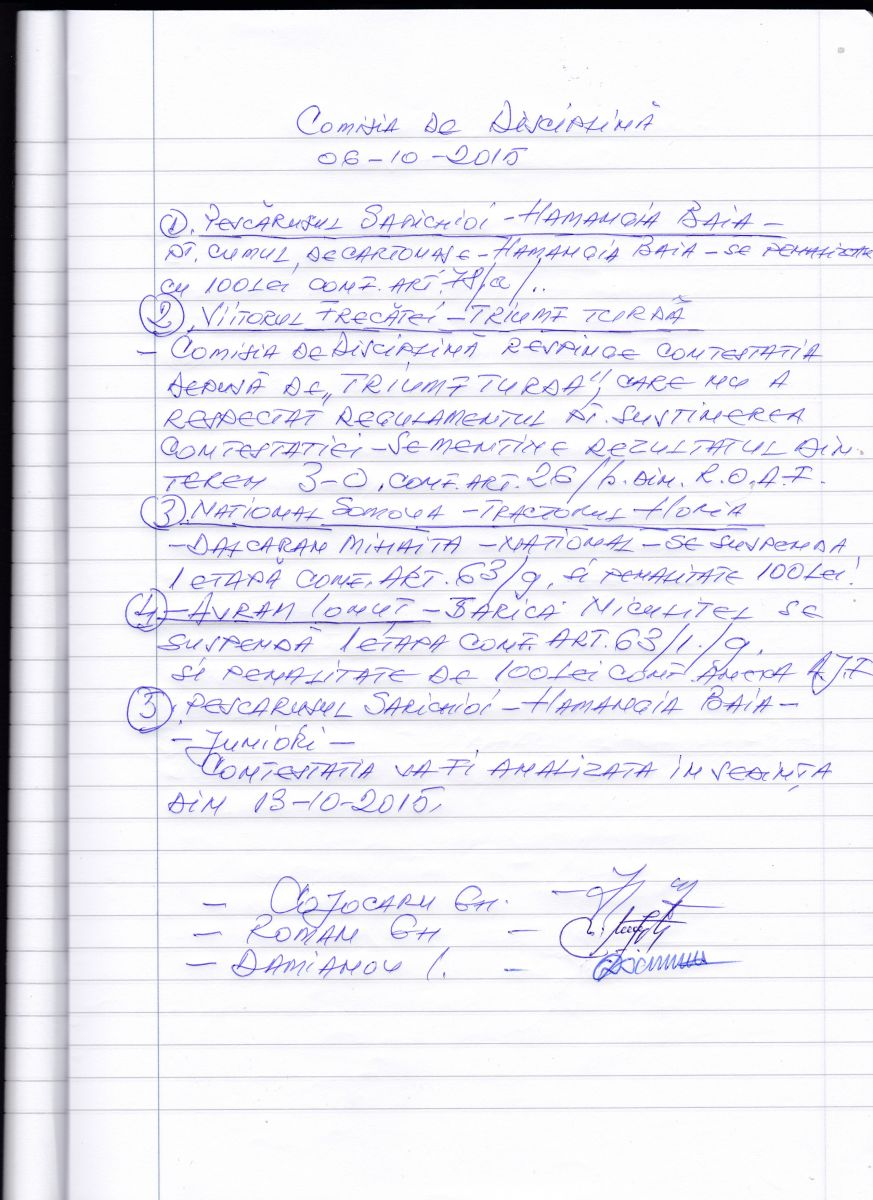 COMISIA DE DISCIPLINĂ
06-10-2015
1. PESCĂRUSUL SARICHIOI - HAMANGIA BAIA -
PT. CUMUL DE CARTONASE - HAMANGIA BAIA - SE PENALIZEAZ
CU 100 LEI CONF. ART. 78/a/..
2. VIITORUL FRECĂTEI - TRIUMF TURDĂ
- COMISIA DE DISCIPLINĂ RESPINGE CONTESTATIA
DEPUSĂ DE "TRIUMF TURDA", CARE NU A
RESPECTAT REGULAMENTUL PT. SUSTINEREA
CONTESTATIEI - SE MENTINE REZULTATUL DIN
TEREN 3-0, CONF. ART. 26/b. DIN. R.O.A.F.
3. NATIONAL SOMOVA - TRACTORUL HORIA
- DALCARAN MIHAITA - NATIONAL - SE SUSPENDA
1 ETAPĂ CONF. ART. 63/g, SI PENALITATE 100 LEI.
4 - AVRAM IONUT - BARICA NICULITEL SE
SUSPENDĂ 1 ETAPA CONF. ART. 63/1./g,
SI PENALITATE DE 100 LEI CONF. ANEXA A.J.F
5. PESCARUSUL SARICHIOI - HAMANGIA BAIA -
- JUNIORI -
CONTESTATIA VA FI ANALIZATA IN SEDINȚA
DIN 13-10-2015.
- COJOCARU GH. -
- ROMAN GH -
- DAMIANOV I. -